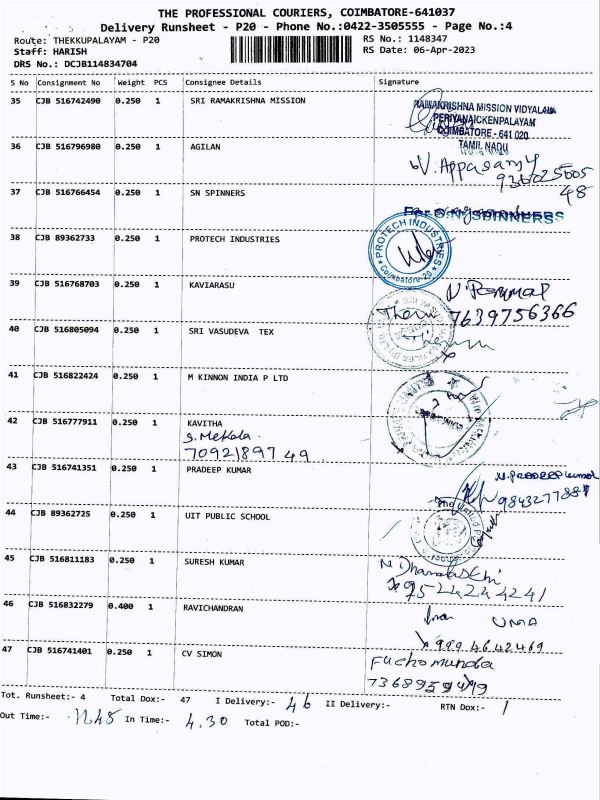 THE PROFESSIONAL COURIERS, COIMBATORE-641037
Delivery Runsheet - P20 - Phone No.:0422-3505555 - Page No.:4
Route: THEKKUPALAYAM - P20 RS No.: 1148347
Staff: HARISH RS Date: 06-Apr-2023
DRS No.: DCJB114834704
S No Consignment No Weight PCS Consignee Details Signature
35 CJB 516742490 0.250 1 SRI RAMAKRISHNA MISSION
RAMAKRISHNA MISSION VIDYALAYA
PERIYANAICKENPALAYAM
COIMBATORE - 641 020
TAMIL NADU
36 CJB 516796980 0.250 1 AGILAN
V. Appasamy
37 CJB 516766454 0.250 1 SN SPINNERS
For S.N. SPINNERS
38 CJB 89362733 0.250 1 PROTECH INDUSTRIES
PROTECH INDUSTRIES
Coimbatore-20
39 CJB 516768703 0.250 1 KAVIARASU
7639756366
40 CJB 516805094 0.250 1 SRI VASUDEVA TEX
41 CJB 516822424 0.250 1 M KINNON INDIA P LTD
42 CJB 516777911 0.250 1 KAVITHA
S. Mekala.
7092189749
43 CJB 516741351 0.250 1 PRADEEP KUMAR
44 CJB 89362725 0.250 1 UIT PUBLIC SCHOOL
45 CJB 516811183 0.250 1 SURESH KUMAR
46 CJB 516832279 0.400 1 RAVICHANDRAN
UMA
47 CJB 516741401 0.250 1 CV SIMON
Tot. Runsheet:- 4 Total Dox:- 47 I Delivery:- 46 II Delivery:- RTN Dox:- 1
Out Time:- 11.45 In Time:- 4.30 Total POD:-